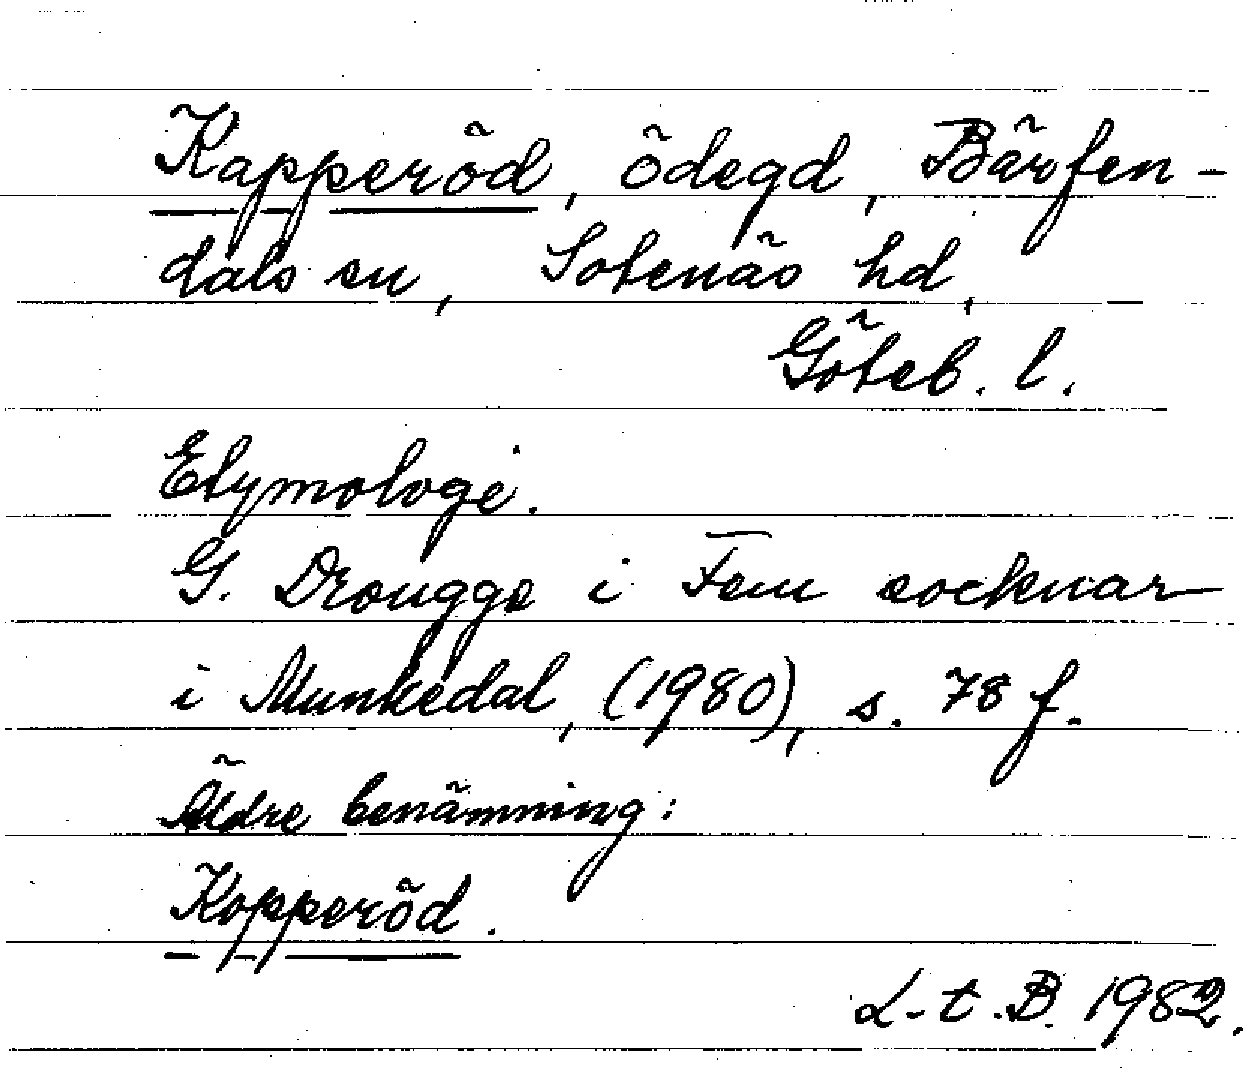 Kapperöd, ödegd, Bärfen-
dals sn, Sotenäs hd,
Göteb. l.
Etymologi.
G. Drougge i Fem socknar
i Munkedal, (1980), s. 78 f.
Äldre benämning:
Kopperöd.
L-t.B. 1982.